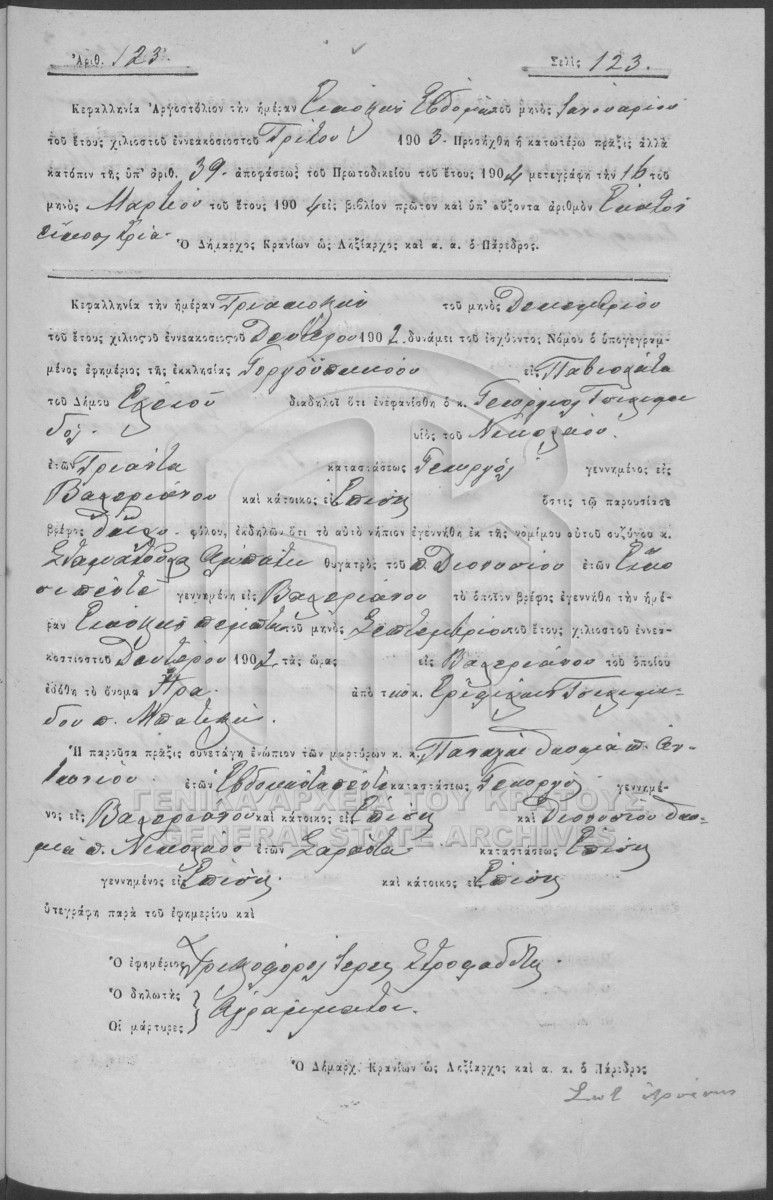 Ἀριθ. 123. Σελὶς 123.
Κεφαλληνία Ἀργοστόλιον τὴν ἡμέραν Εἰκοστὴν Ἑβδόμην τοῦ μηνὸς Ἰανουαρίου
τοῦ ἔτους χιλιοστοῦ ἐννεακοσιοστοῦ Τρίτου 1903. Προσήχθη ἡ κατωτέρω πρᾶξις ἀλλὰ
κατόπιν τῆς ὑπ' ἀριθ. 39. ἀποφάσεως τοῦ Πρωτοδικείου τοῦ ἔτους 1904 μετεγράφη τὴν 16 τοῦ
μηνὸς Μαρτίου τοῦ ἔτους 1904 εἰς βιβλίον πρῶτον καὶ ὑπ' αὔξοντα ἀριθμὸν Ἑκατὸν
εἴκοσι τρία.
Ὁ Δήμαρχος Κρανίων ὡς Ληξίαρχος καὶ α. α. ὁ Πάρεδρος.
Κεφαλληνία τὴν ἡμέραν Τριακοστὴν τοῦ μηνὸς Δεκεμβρίου
τοῦ ἔτους χιλιοστοῦ ἐννεακοσιοστοῦ Δευτέρου 1902 δυνάμει τοῦ ἰσχύοντος Νόμου ὁ ὑπογεγραμ-
μένος ἐφημέριος τῆς ἐκκλησίας Γοργοϋπηκόου εἰς
τοῦ Δήμου Ἐλειοῦ διαδηλοῖ ὅτι ἐνεφανίσθη ὁ κ. Γεώργιος Τσελεμε
δος. υἱὸς τοῦ Νικολάου.
ἐτῶν Τριάντα καταστάσεως Γεωργὸς γεννημένος εἰς
Βαλεριάνου καὶ κάτοικος εἰς Ἐπίσης ὅστις τῷ παρουσίασε
βρέφος θήλεος φύλου, ἐκδηλῶν ὅτι τὸ αὐτὸ νήπιον ἐγεννήθη ἐκ τῆς νομίμου αὐτοῦ συζύγου κ.
Σταματούλα θυγατρὸς τοῦ π. Διονυσίου ἐτῶν Εἴκο
σι πέντε γεννημένη εἰς Βαλεριάνου τὸ ὁποῖον βρέφος ἐγεννήθη τὴν ἡμέ-
ραν Εἰκοστὴν πέμπτην τοῦ μηνὸς Σεπτεμβρίου τοῦ ἔτους χιλιοστοῦ ἐννεα-
κοστιοστοῦ Δευτέρου 1902 τὰς ὥρας εἰς Βαλεριάνου τοῦ ὁποίου
ἐδόθη τὸ ὄνομα Ἥρα. ἀπὸ τ κ.
δου π.
Ἡ παροῦσα πρᾶξις συνετάγη ἐνώπιον τῶν μαρτύρων κ. κ. Παναγῆς π. Ἀν-
τωνίου ἐτῶν Ἑβδομήντα πέντε καταστάσεως Γεωργὸς γεννημέ-
νος εἰς Βαλεριάνου καὶ κάτοικος εἰς Ἐπίσης καὶ Διονυσίου
π. Νικολάου ἐτῶν Σαράντα καταστάσεως Ἐπίσης
γεννημένος εἰς Ἐπίσης. καὶ κάτοικος εἰς Ἐπίσης
ὑπεγράφη παρὰ τοῦ ἐφημερίου καὶ
Ὁ ἐφημέριος Ἱερεὺς
Ὁ δηλωτὴς
Ἀγράμματοι.
Οἱ μάρτυρες
Ὁ Δήμαρχ. Κρανίων ὡς Ληξίαρχος καὶ α. α. ὁ Πάρεδρος
ΓΕΝΙΚΑ ΑΡΧΕΙΑ ΤΟΥ ΚΡΑΤΟΥΣ
GENERAL STATE ARCHIVES